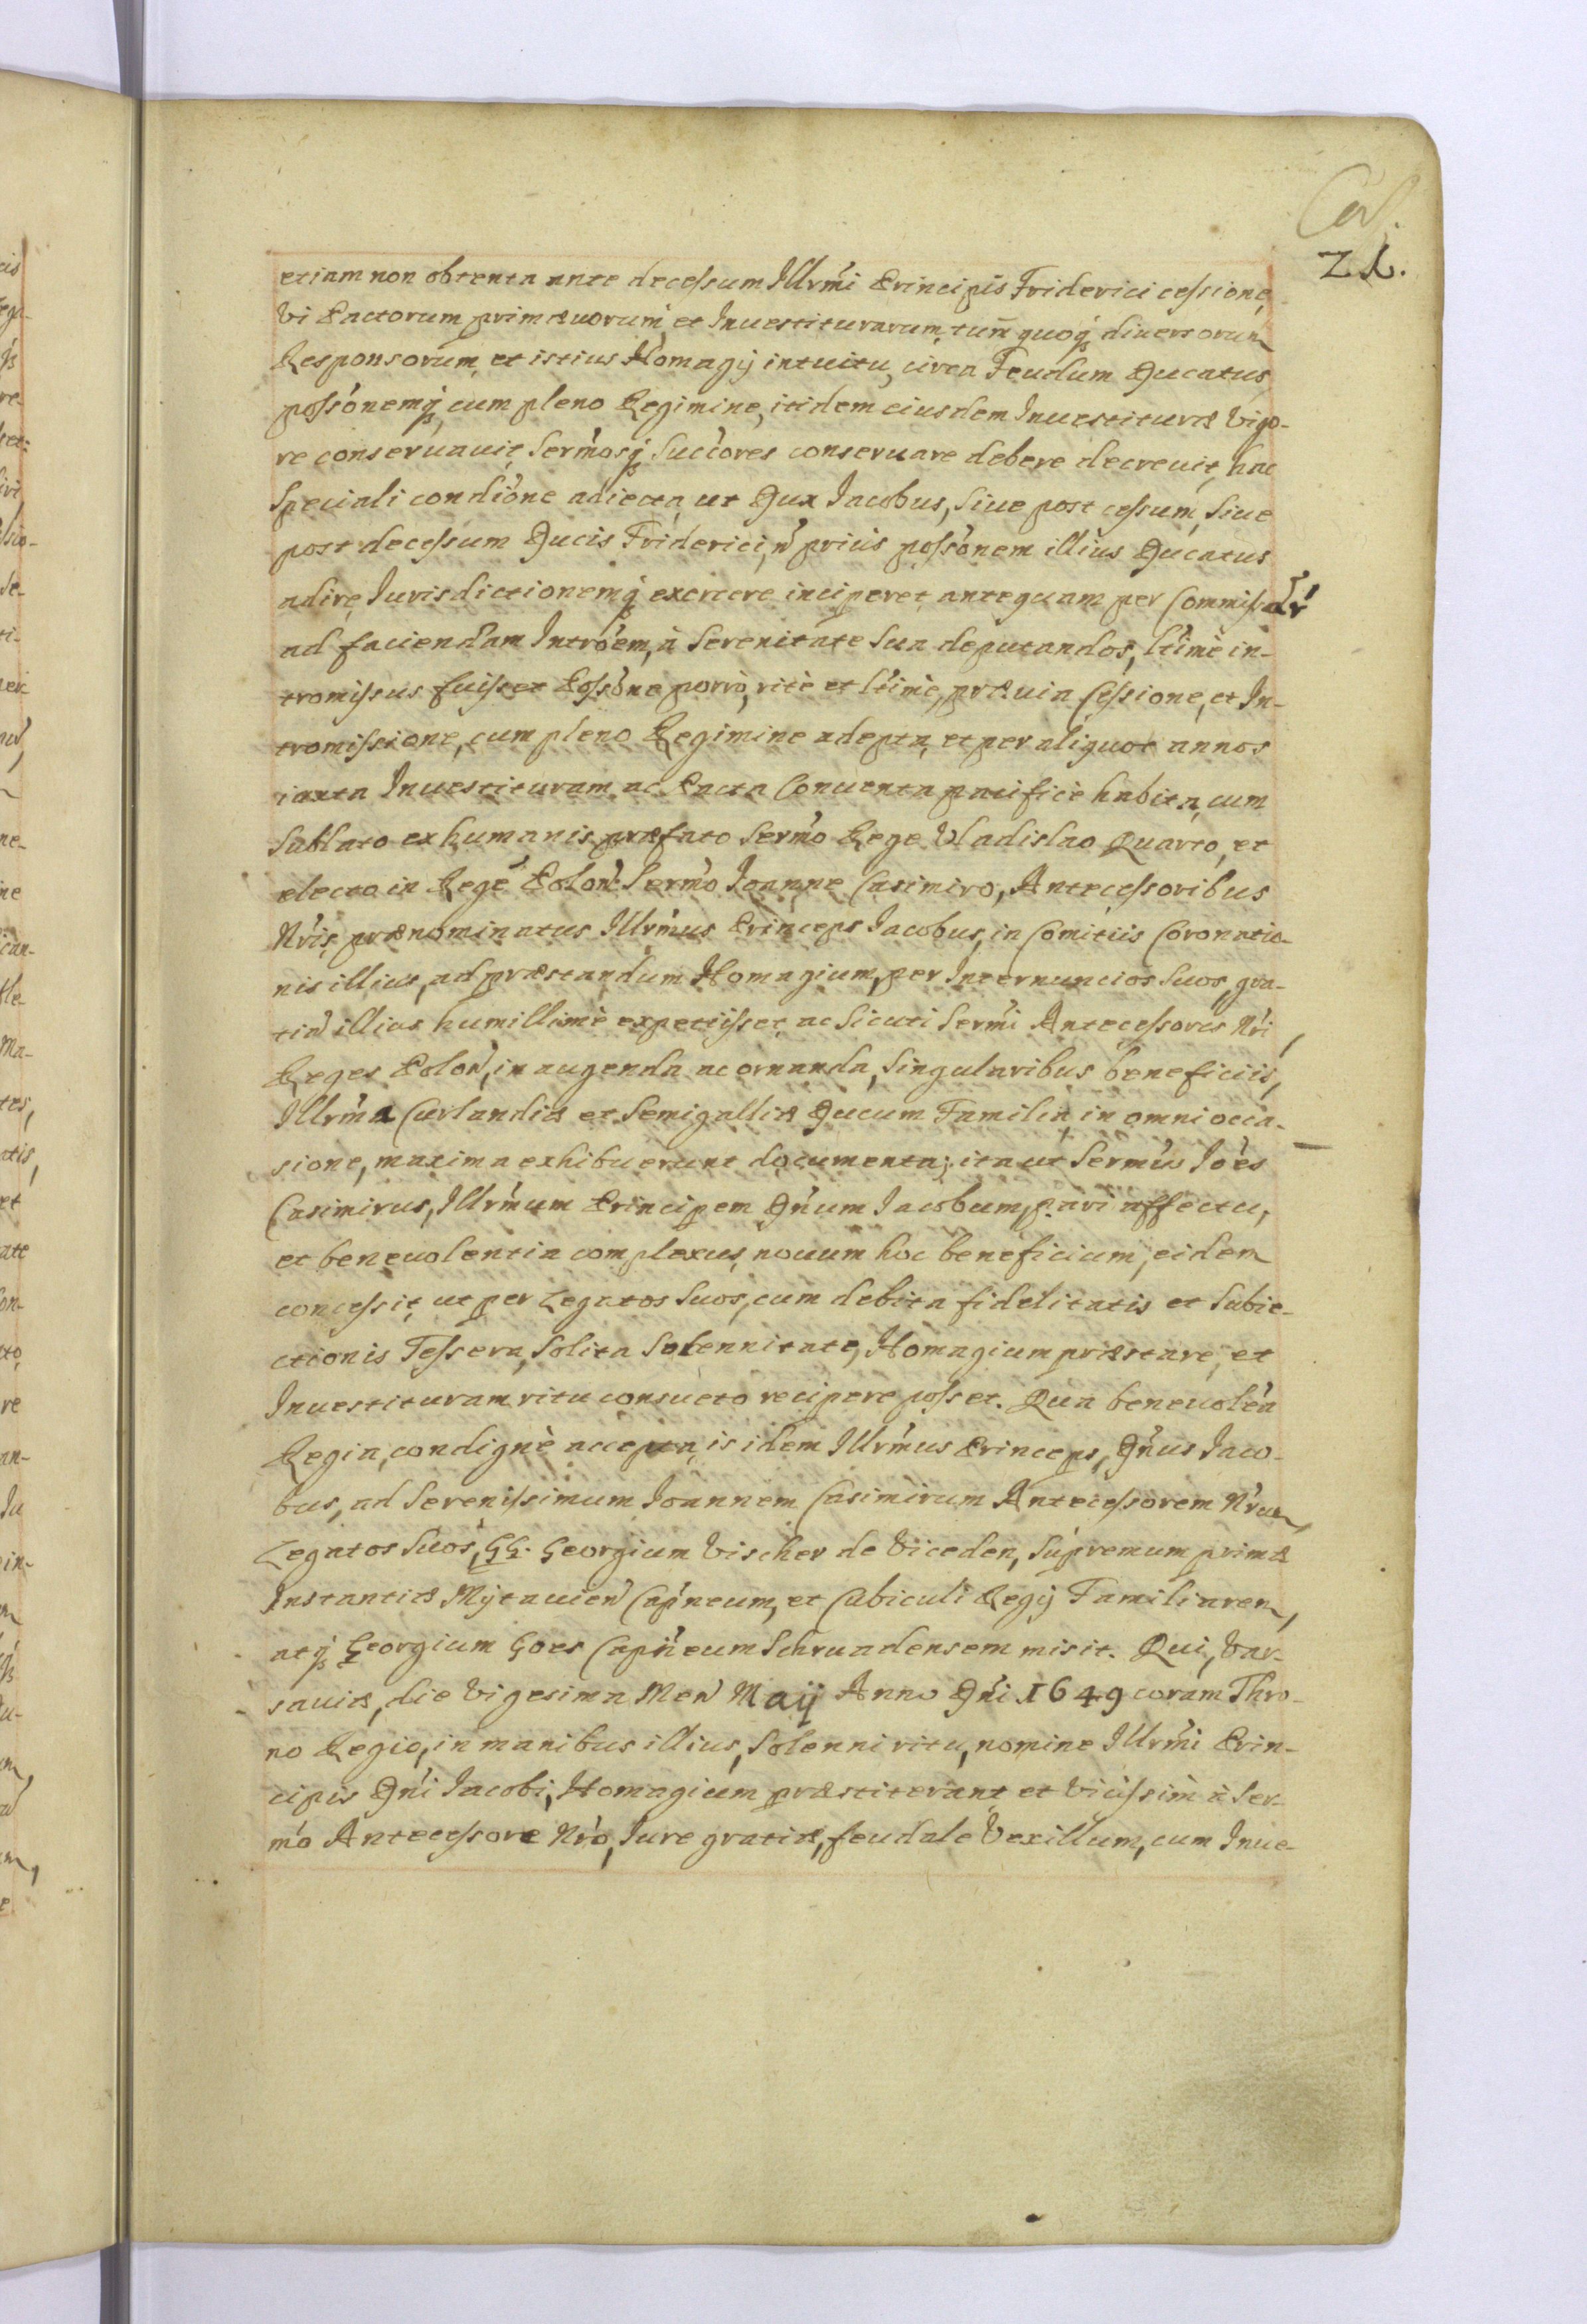 21.
etiam non obtenta ante decessum Illrm̃i Principis Friderici cessione,
Vi Pactorum primæuorum et Inuestiturarum, tum̃ quoq́ diuersorum
Responsorum, et istius Homagij intuitu, circa Feudum Ducatus,
possõnemq́, cum pleno Regimine, itidem eiusdem Inuestituræ Vigo-
re conseruauit, Serm̃osq́ Succ̃ores conseruare debere decreuit, hac
Speciali condiõne adiecta, ut Dux Iacobus, Siue post cessum, Siue
post decessum Ducis Friderici, ñ prius possõnem illius Ducatus
adire, Iurisdictionemq́ exercere inciperet, antequam per Commissar̃
ad faciendam Intrõem, à Serenitate Sua deputandos, l̃timè in-
tromissus fuisset. Possõne porrò, ritè et l̃timè, præuia Cessione, et In-
tromissione, cum pleno Regimine adepta, et per aliquot annos
iuxta Inuestituram, ac Pacta Conuenta pacificè habita, cum
Sublato ex humanis, præfato Serm̃o Rege Vladislao Quarto, et
electo in Regẽ Poloñ Serm̃o Ioanne Casimiro, Antecessoribus
Nr̃is, prænominatus Illrm̃us Princeps Iacobus, in Comitiis Coronatio-
nis illius, ad præstandum Homagium, per Internuncios Suos, gra-
tiã illius humillimè expetiisset, ac Sicuti Serm̃i Antecessores Nr̃i
Reges Poloñ, in augenda ac ornanda, Singularibus beneficiis,
Illrm̃a Curlandiæ et Semigalliæ Ducum Familia, in omni occa-
sione, maxima exhibuerunt documenta; ita ut Serm̃us Iões
Casimirus, Illrm̃um Principem Dñum Iacobum, pari affectu,
et beneuolentia complexus, nouum hoc beneficium, eidem
concessit, ut per Legatos Suos, cum debita fidelitatis et Subie-
ctionis Tessera, Solita Solennitate, Homagium præstare, et
Inuestituram ritu consueto recipere posset. Qua beneuolẽa
Regia, condignè accepta, is idem Illrm̃us Princeps, Dñus Iaco-
bus, ad Serenissimum Ioannem Casimirum Antecessorem Nr̃um,
Legatos Suos, GG. Georgium Vischer de Viceden, Supremum primæ
Instantiæ Mytauieñ Cap̃neum, et Cubiculi Regij Familiarem,
atq́ Georgium Goes Cap̃neum Schruadensem misit. Qui, Var-
sauiæ, die Vigesima Meñ Maij Anno Dñi 1649 coram Thro-
no Regio, in manibus illius, Solenni ritu, nomine Illrm̃i Prin-
cipis Dñi Iacobi, Homagium præstiterunt et Vicissim à Ser-
m̃o Antecessore Nr̃o, Iure gratiæ, feudale Vexillum, cum Inue-